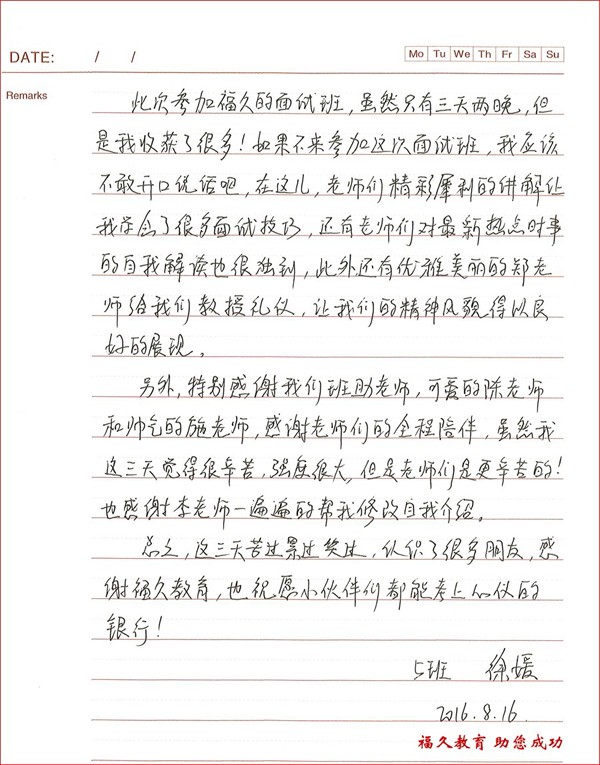 DATE: / /
Mo Tu We Th Fr Sa Su
Remarks
此次参加福久的面试班，虽然只有三天两晚，但
是我收获了很多！如果不来参加这次面试班，我应该
不敢开口说话吧，在这儿，老师们精彩犀利的讲解让
我学会了很多面试技巧，还有老师们对最新热点时事
的自我解读也很独到，此外还有优雅美丽的郑老
师给我们教授礼仪，让我们的精神风貌得以良
好的展现。
另外，特别感谢我们班助老师，可爱的陈老师
和帅气的施老师，感谢老师们的全程陪伴，虽然我
这三天觉得很辛苦，强度很大，但是老师们是更辛苦的！
也感谢李老师一遍遍的帮我修改自我介绍。
总之，这三天苦过累过笑过，认识了很多朋友，感
谢福久教育，也祝愿小伙伴们都能考上心仪的
银行！
5班 徐媛
2016.8.16.
福久教育 助您成功